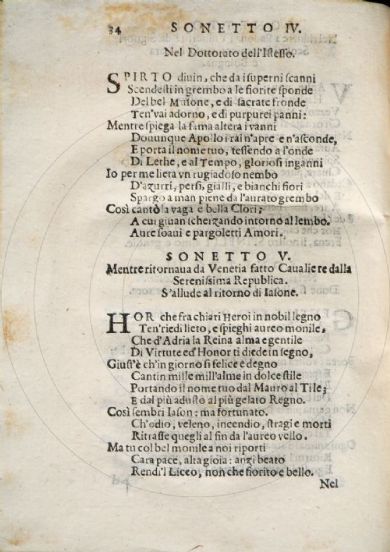 34 SONETTO IV.
Nel Dottorato dell'Istesso.
SPIRTO diuin, che da i superni scanni
Scendesti in grembo a le fiorite sponde
Del bel Masone, e di sacrate fronde
Ten'vai adorno, e di purpurei panni:
Mentre spiega la fama altera i vanni
Dounque Apollo i rai n'apre e n'asconde,
E porta il nome tuo, tessendo a l'onde
Di Lethe, e al Tempo, gloriosi inganni
Io per me lieta vn rugiadoso nembo
D'azurri, persi, gialli, e bianchi fiori
Spargo a man piene da l'aurato grembo
Così cantò la vaga e bella Clori;
A cui giuan scherzando intorno al lembo.
Aure soaui e pargoletti Amori.
SONETTO V.
Mentre ritornaua da Venetia fatto Caualiere dalla
Serenissima Republica.
S'allude al ritorno di Iasone.
HOR che fra chiari Heroi in nobil legno
Ten'riedi lieto, e spieghi aureo monile,
Che d'Adria la Reina alma e gentile
Di Virtute ed' Honor ti diede in segno,
Giust'è ch'in giorno si felice e degno
Cantin mille mill'alme in dolce stile
Portando il nome tuo dal Mauro al Tile;
E dal più adusto al più gelato Regno.
Così sembri Iason: ma fortunato.
Ch'odio, veleno, incendio, stragi e morti
Ritrasse quegli al fin da l'aureo vello.
Ma tu col bel monile a noi riporti
Cara pace, alta gioia: anzi beato
Rendi'l Liceo, non che fiorito e bello.
Nel